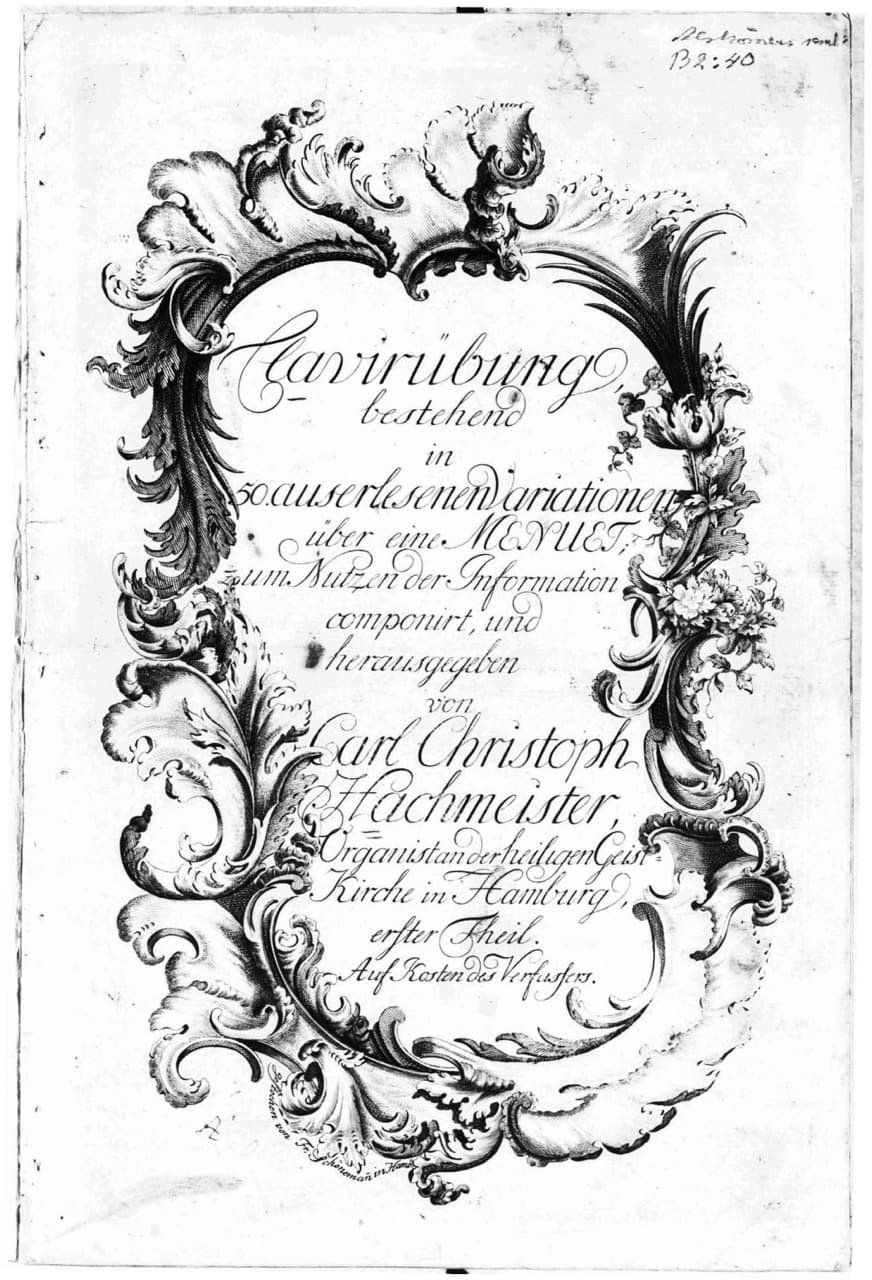 B2:40
Clavirübung,
bestehend
in
50. auserlesenen Variationen
über eine MENUET,
zum Nutzen der Information
componirt, und
herausgegeben
von
Carl Christoph
Hachmeister,
Organist an der heiligen Geist=
Kirche in Hamburg,
erster Theil.
Auf Kosten des Verfassers.
von Fr. Schönemañ in Hamb